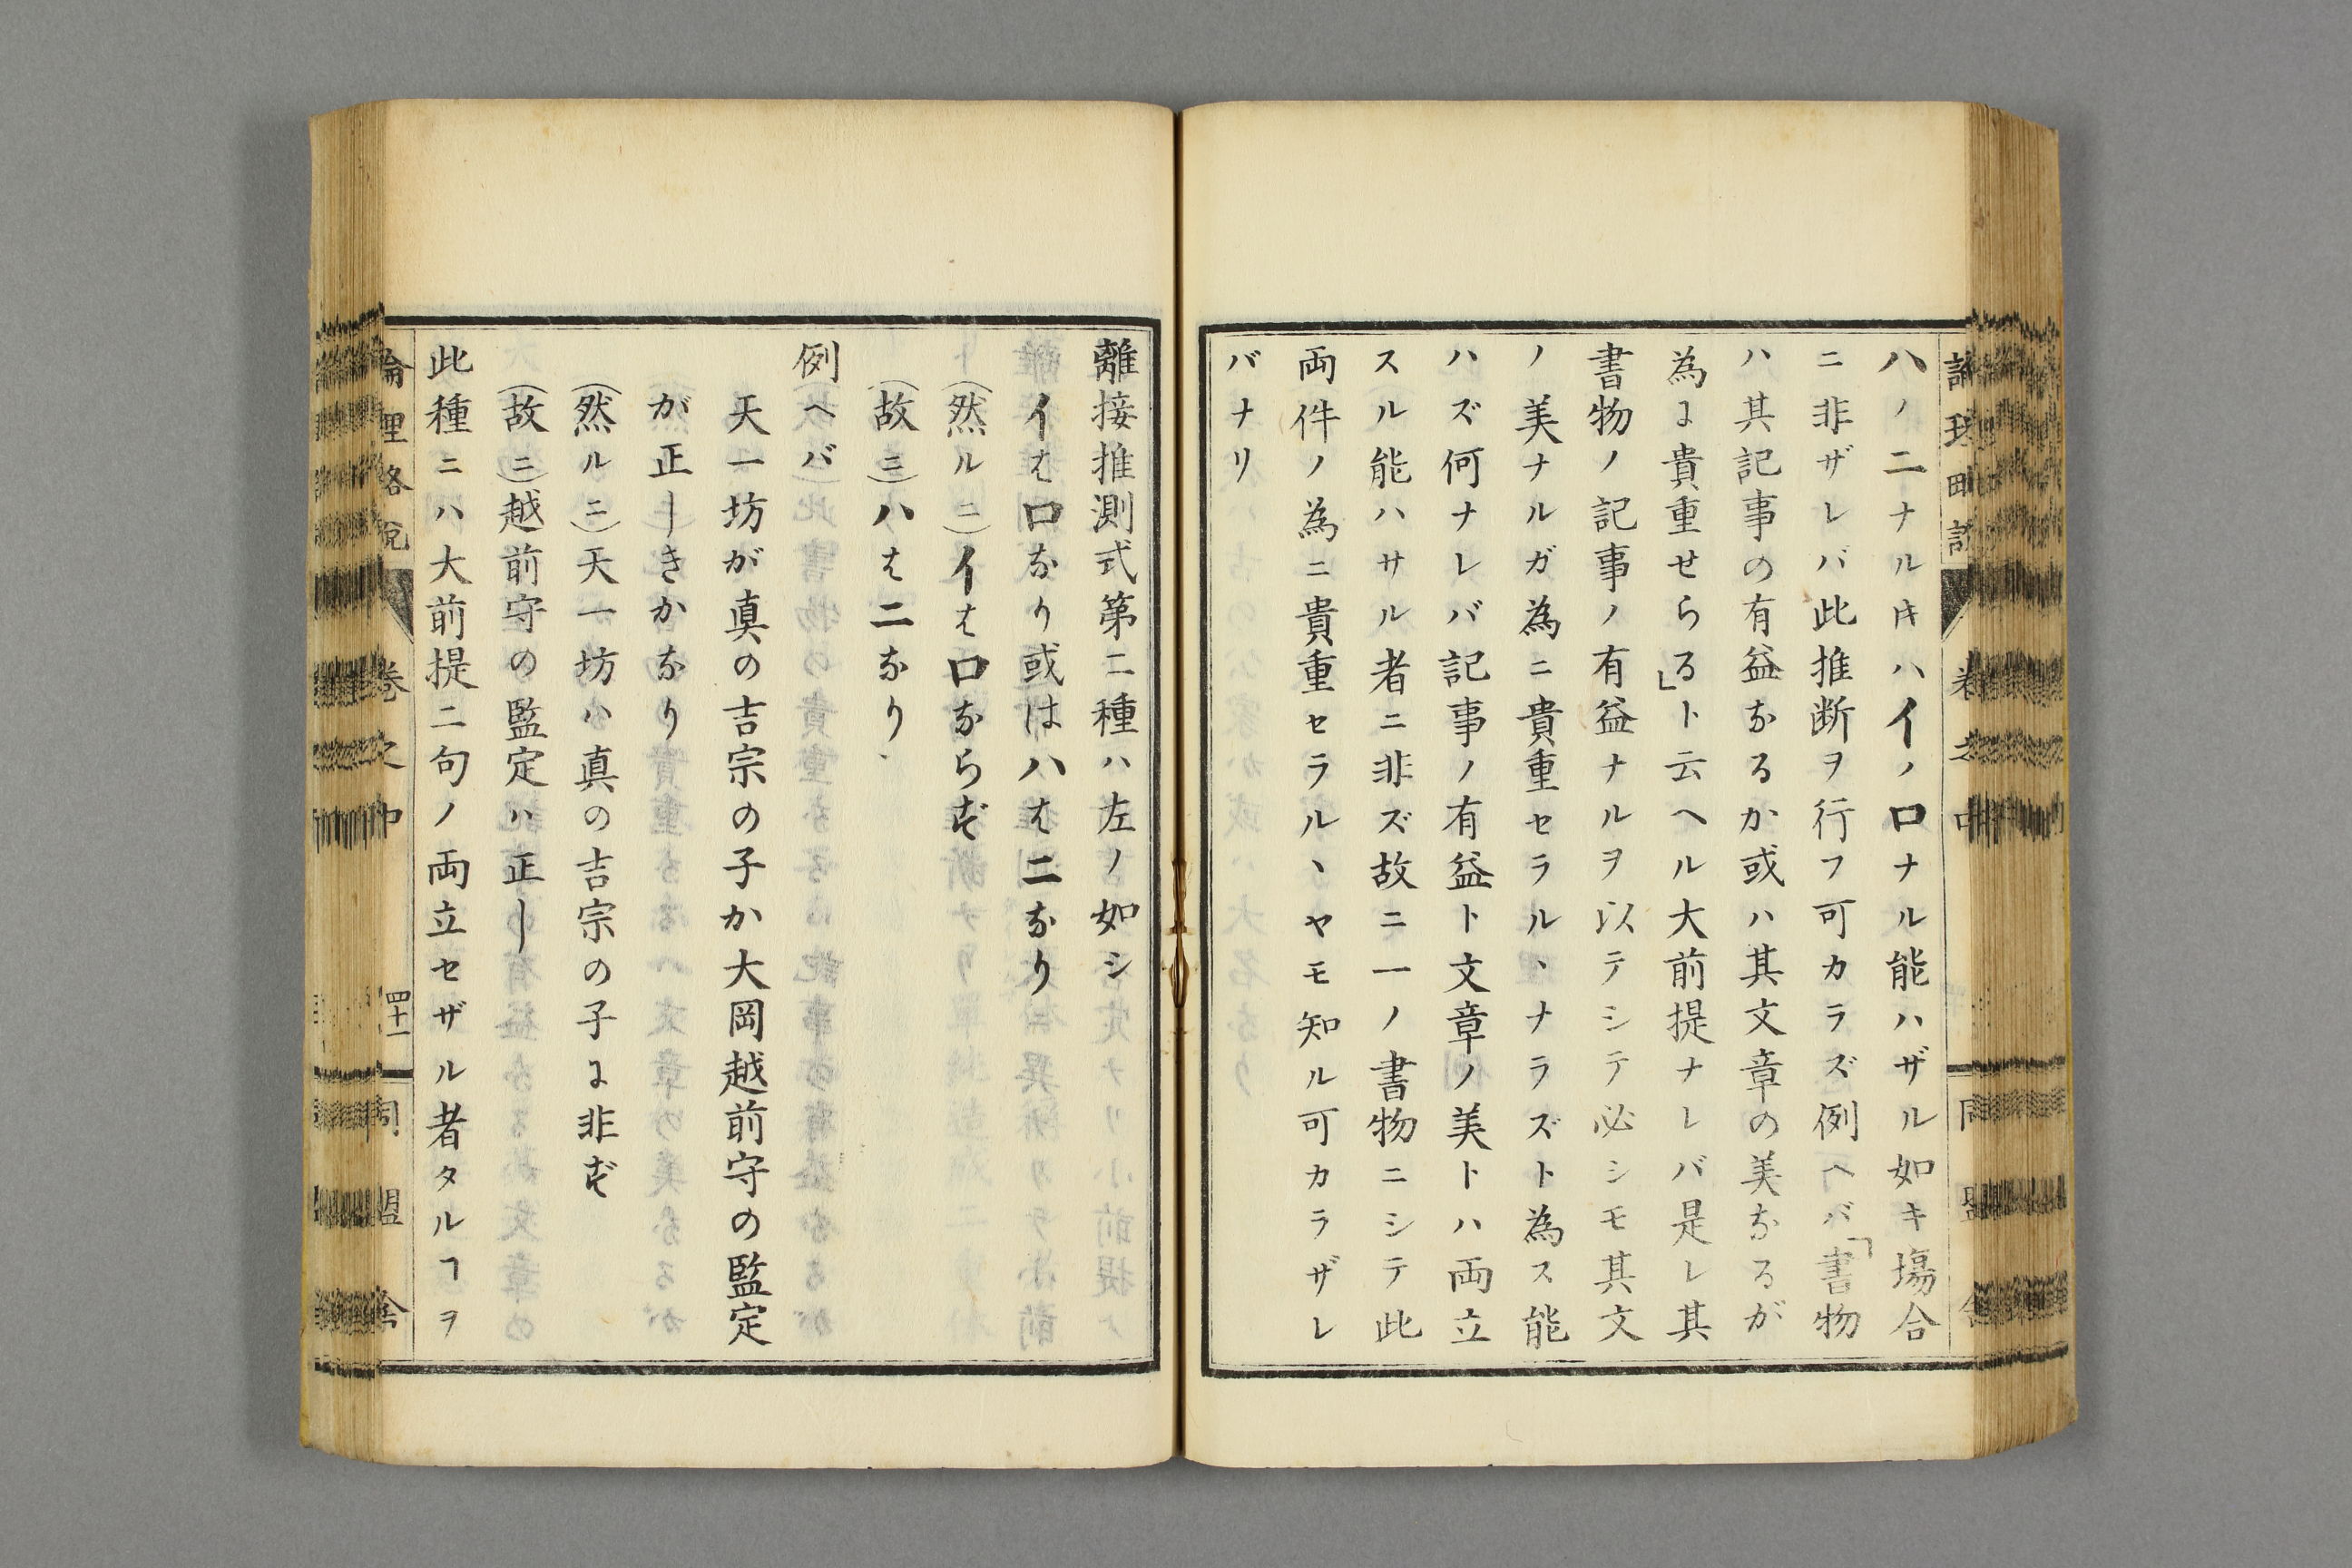 ハノ二ナル𪜈ハイノロナル能ハザル如キ塲合
ニ非ザレバ此推断ヲ行フ可カラズ例ヘバ「書物
ハ其記事の有益なるか或ハ其文章の美なるが
為に貴重せらる」ト云ヘル大前提ナレバ是レ其
書物ノ記事ノ有益ナルヲ以テシテ必シモ其文
ノ美ナルガ為ニ貴重セラルヽナラズト為ス能
ハズ何ナレバ記事ノ有益ト文章ノ美トハ両立
スル能ハサル者ニ非ズ故ニ一ノ書物ニシテ此
両件ノ為ニ貴重セラルヽヤモ知ル可カラザレ
バナリ
離接推測式第二種ハ左ノ如シ
イはロなり或はハは二なり
(然ルニ)イはロならず
(故ニ)ハは二なり
例ヘバ
天一坊が真の吉宗の子か大岡越前守の監定
が正しきかなり
(然ルニ)天一坊ハ真の吉宗の子に非ず
(故ニ)越前守の監定ハ正し
此種ニハ大前提二句ノ両立セザル者タルヿヲ
論理略説
巻之中
四十一
同盟舎